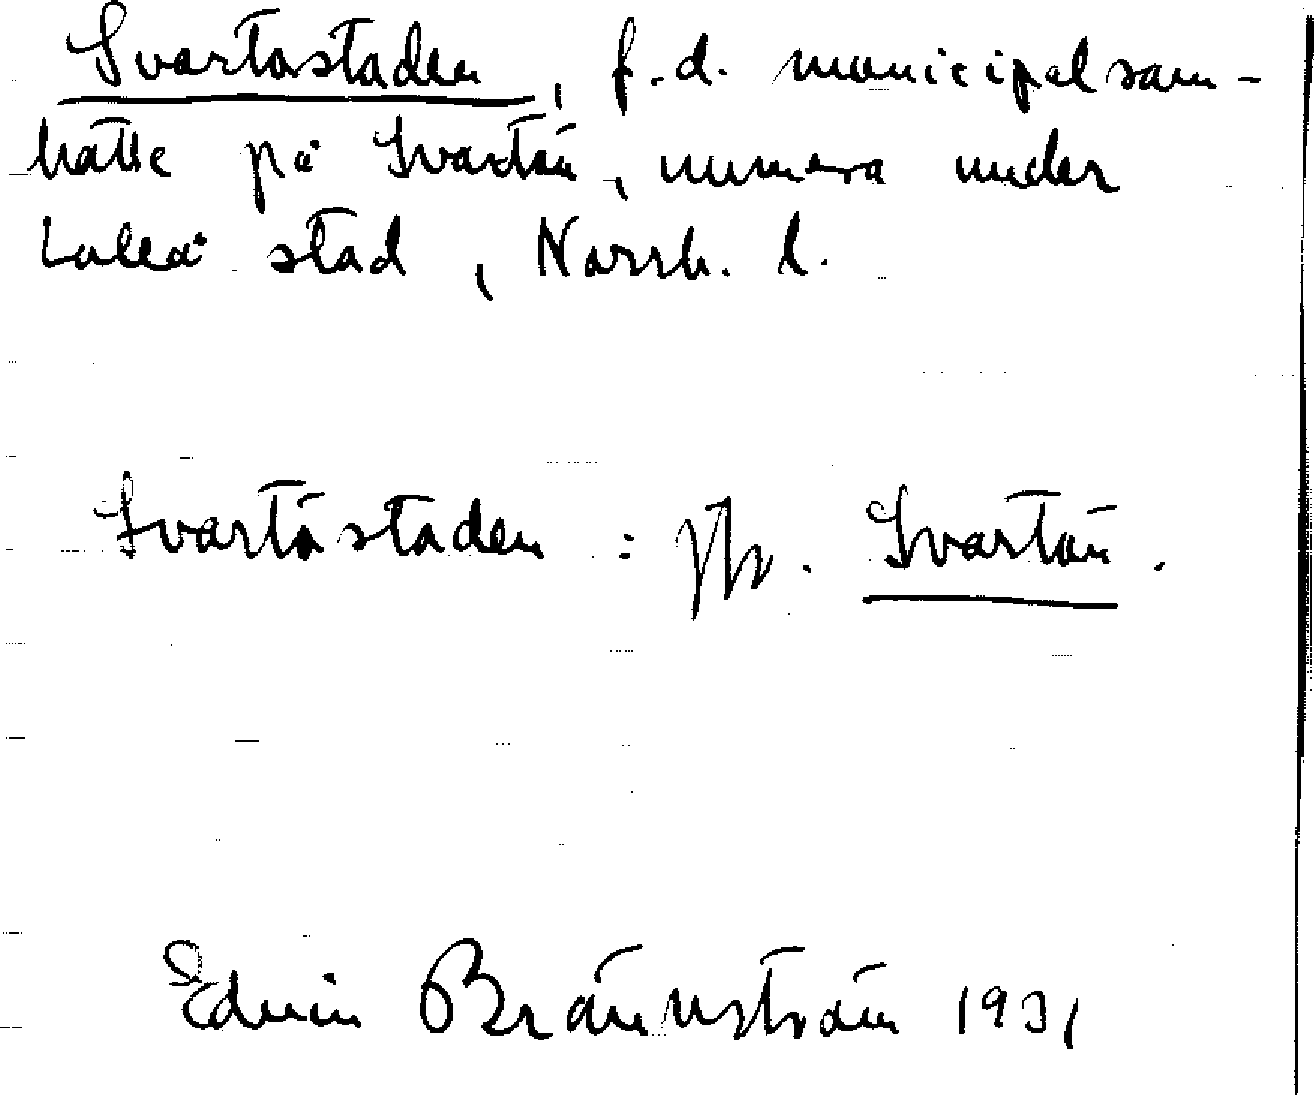 Svartöstaden, f.d. municipalsam-
hälle på Svartön, numera under
Luleå stad, Norrb. l.
Svartöstaden : jfr. Svartön.
Edvin Brännström 1931